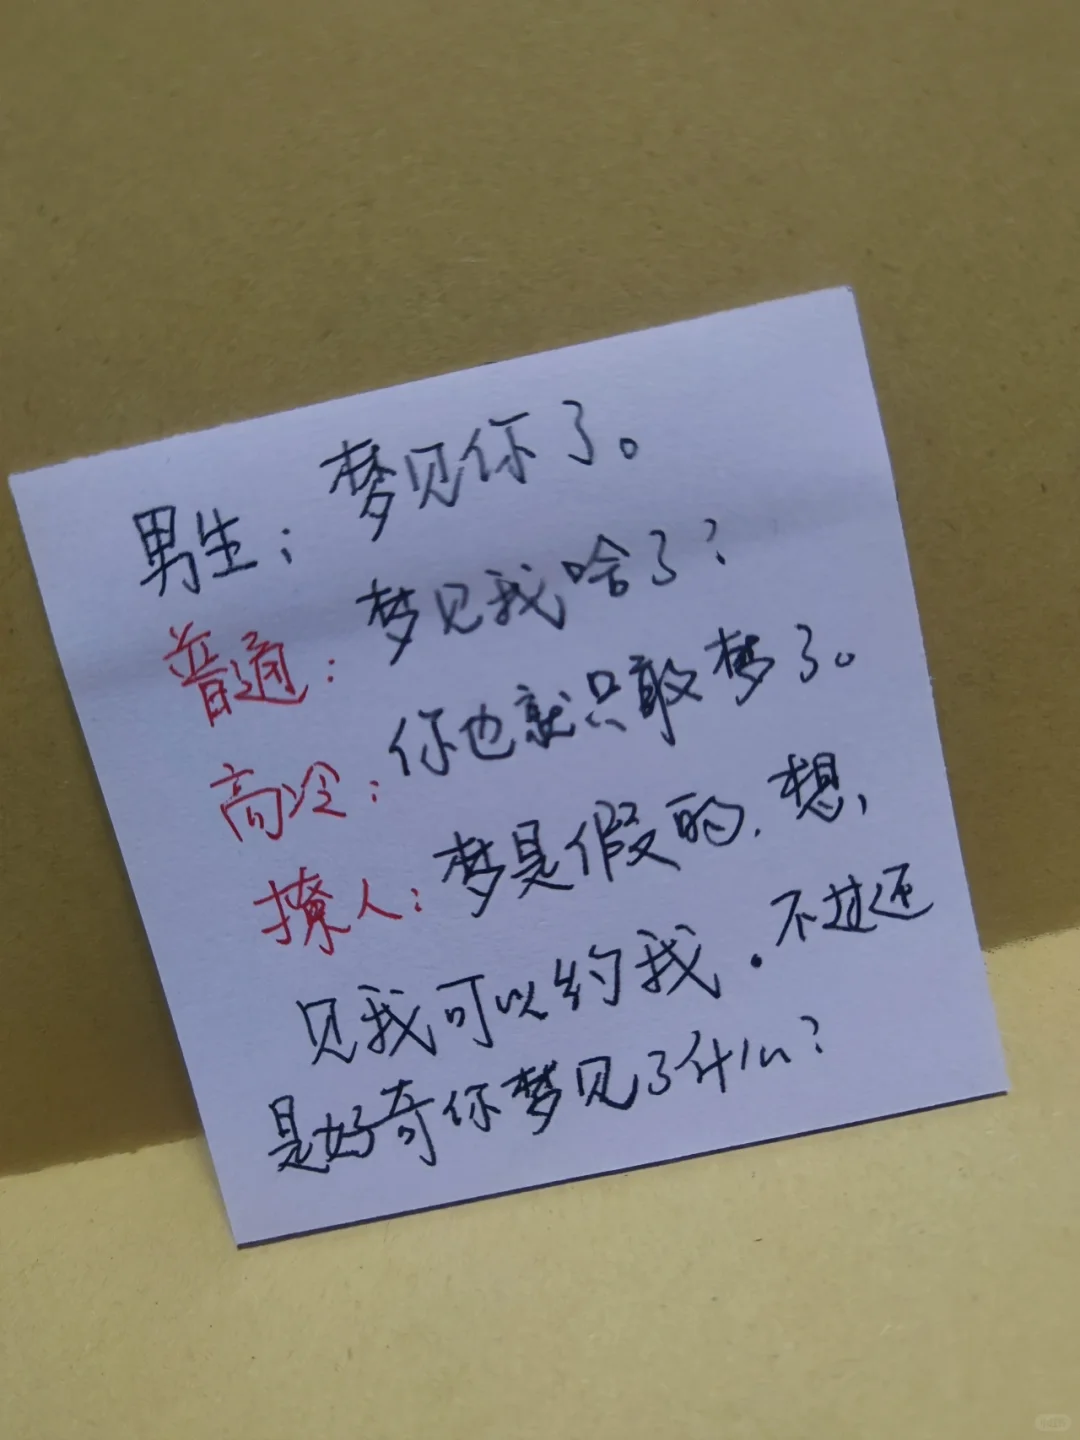 男生：梦见你了。
普通：梦见我啥了？
高冷：你也就只敢梦了。
撩人：梦是假的，想，
见我可以约我．不过还
是好奇你梦见了什么？